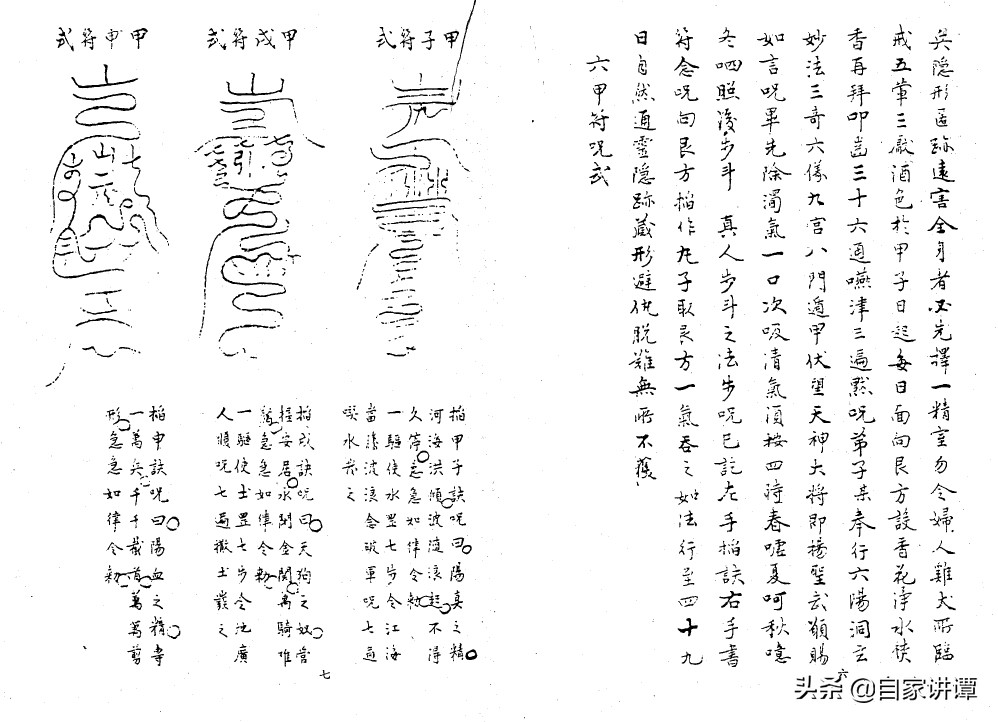 吳隐形匿跡遠害全身者必先擇一精室勿令婦人雞犬所臨
戒五葷三厭酒色於甲子日起每日面向艮方設香花淨水焚
香再拜叩齒三十六通嚥津三遍默咒弟子某奉行六陽洞玄
妙法三奇六儀九宮八門遁甲伏望天神大將即揚聖云願賜
如言咒畢先除濁氣一口次吸清氣須按四時春噓夏呵秋噫
冬呬照後步斗 真人步斗之法步咒已訖左手搯訣右手書
符念咒向艮方搯作丸子取艮方一氣吞之如法行至四十九
日自然通靈隐跡藏形避仇脱難無所不護
六甲符咒式
六
甲子符式
搯甲子訣咒曰陽真之精
河海洪傾波漣滾起不得
久停急急如律令勅
一驅使水罡七步令江海
當諸波浪念破軍咒七遍
噀水
之
甲戌符式
搯戌訣咒曰天
之奴當
居水開金関萬騎唯
急急如律令勅
一驅使土罡七步令
廣
人
咒七遍撒土
之
甲申符式
搯申訣咒曰陽血之精
一萬兵千千
首萬萬剪
形急急如律令勅
七
头条 @自家讲谭